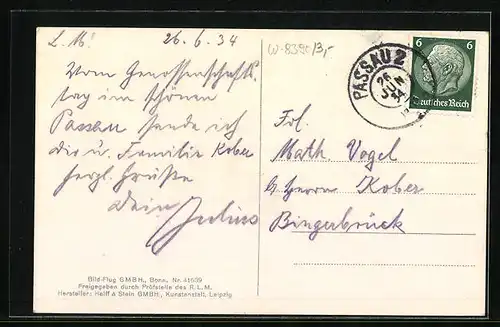 L. M! 26. 6. 34
Vom Genossenschafts-
tag im schönen
Passau sende ich
dir u. Familie Kober
herzl. Grüße
Dein Julius
W-8390/3,-
PASSAU 2
26
JUN
34
6 6
Deutsches Reich
Frl.
Math Vogel
b. Herrn Kober
Bingerbrück
Bild-Flug GMBH., Bonn. Nr. 41609
Freigegeben durch Prüfstelle des R. L. M.
Hersteller: Helff & Stein GMBH., Kunstanstalt, Leipzig